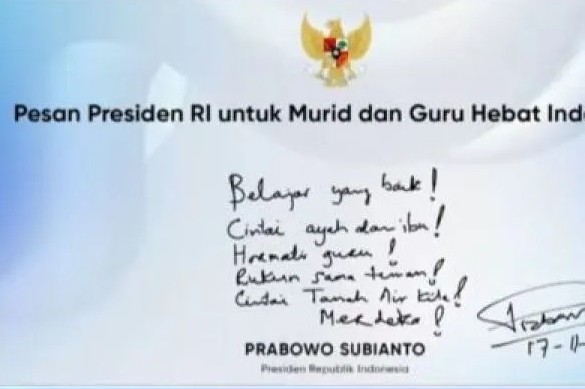 Pesan Presiden RI untuk Murid dan Guru Hebat Indo
Belajar yang baik!
Cintai ayah dan ibu!
Hormati guru!
Rukun sama teman!
Cintai Tanah Air kita!
Merdeka!
PRABOWO SUBIANTO
Presiden Republik Indonesia
17-11